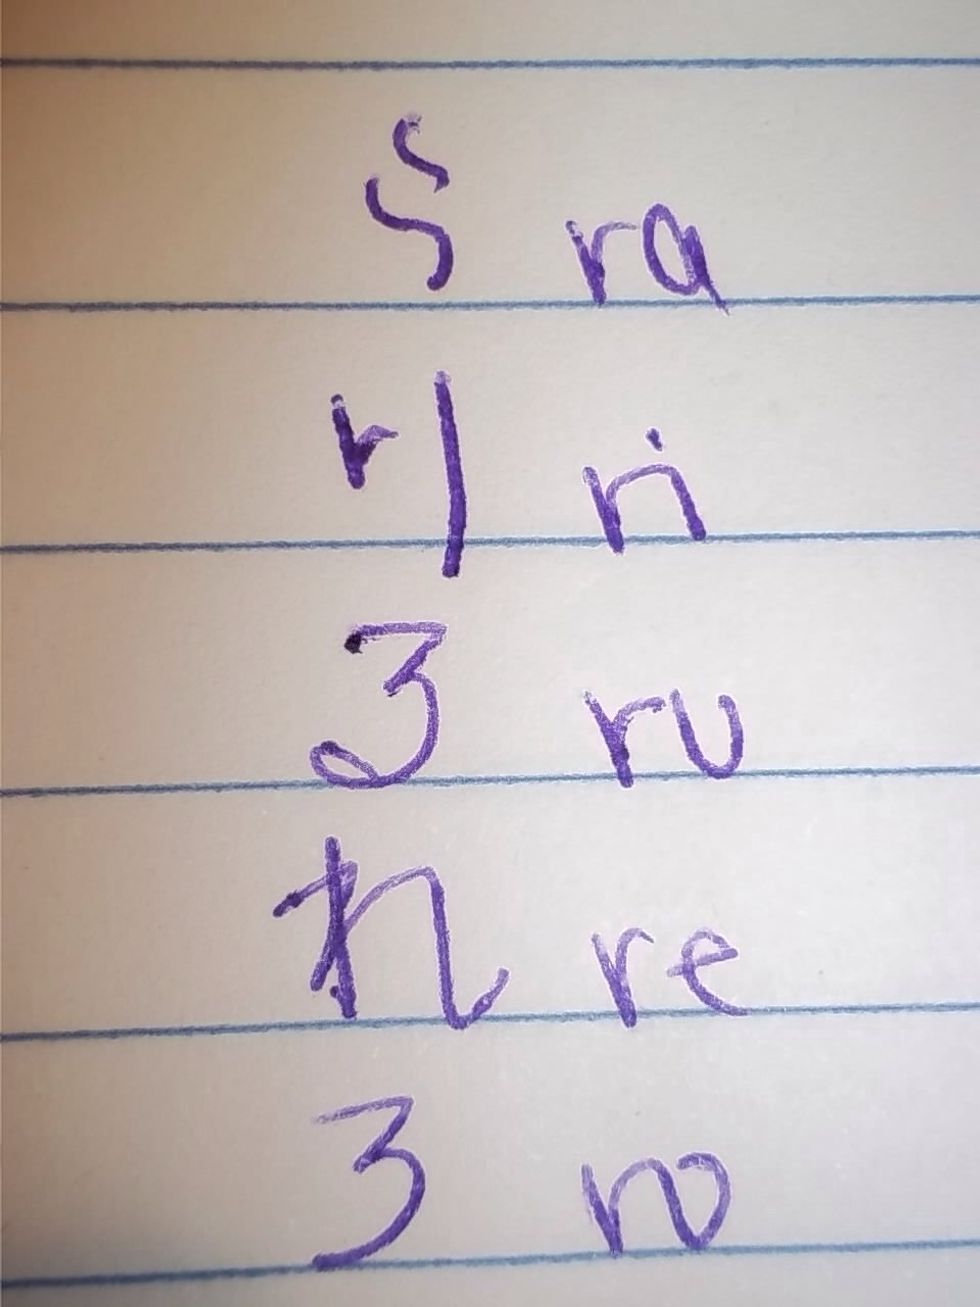 ら ra
り ri
る ru
れ re
ろ ro